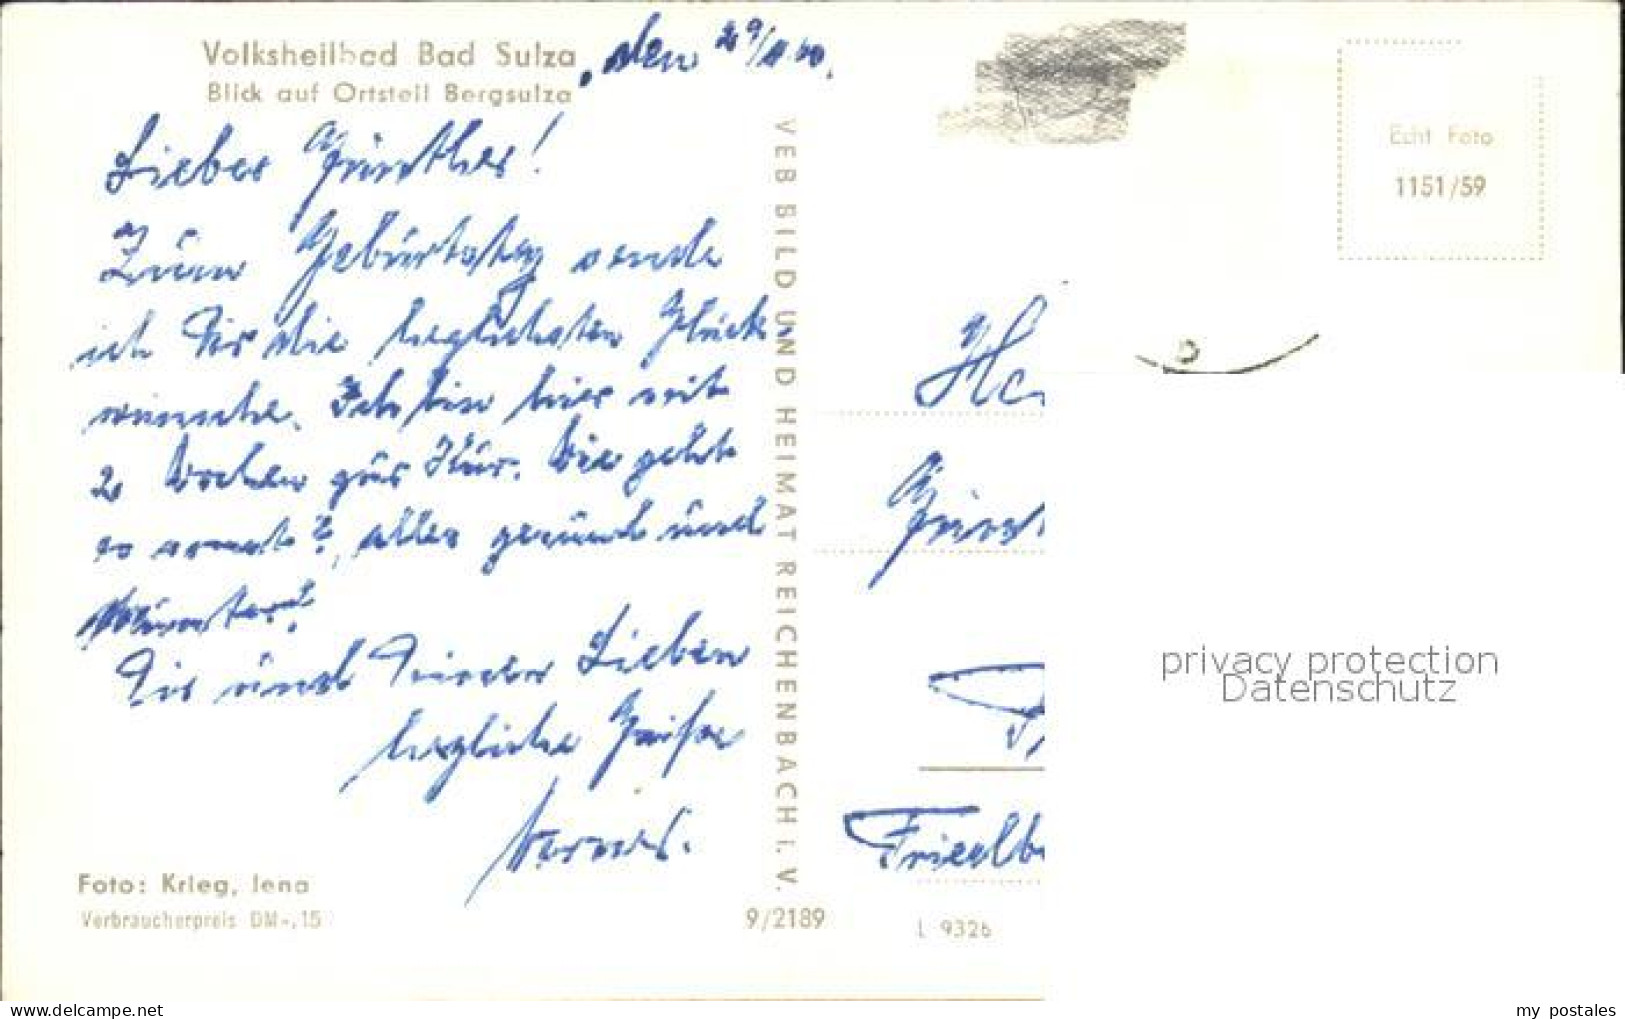 Volksheilbad Bad Sulza, den 29/11.60.
Blick auf Ortsteil Bergsulza
Lieber Günther!
Zum Geburtstag sende
ich Dir die herzlichsten Glück-
wünsche. Ich bin hier seit
2 Wochen zur Kur. Wie geht
es sonst?, alles gesund und
munter?
Dir und Deinen Lieben
herzliche Grüße
Werner.
Foto: Krieg, Jena
Verbraucherpreis DM -,15
VEB BILD UND HEIMAT REICHENBACH i. V.
9/2189
Echt Foto
1151/59
He
Günt
Friedb
L 9326
privacy protection
Datenschutz
www.delcampe.net
my_postales